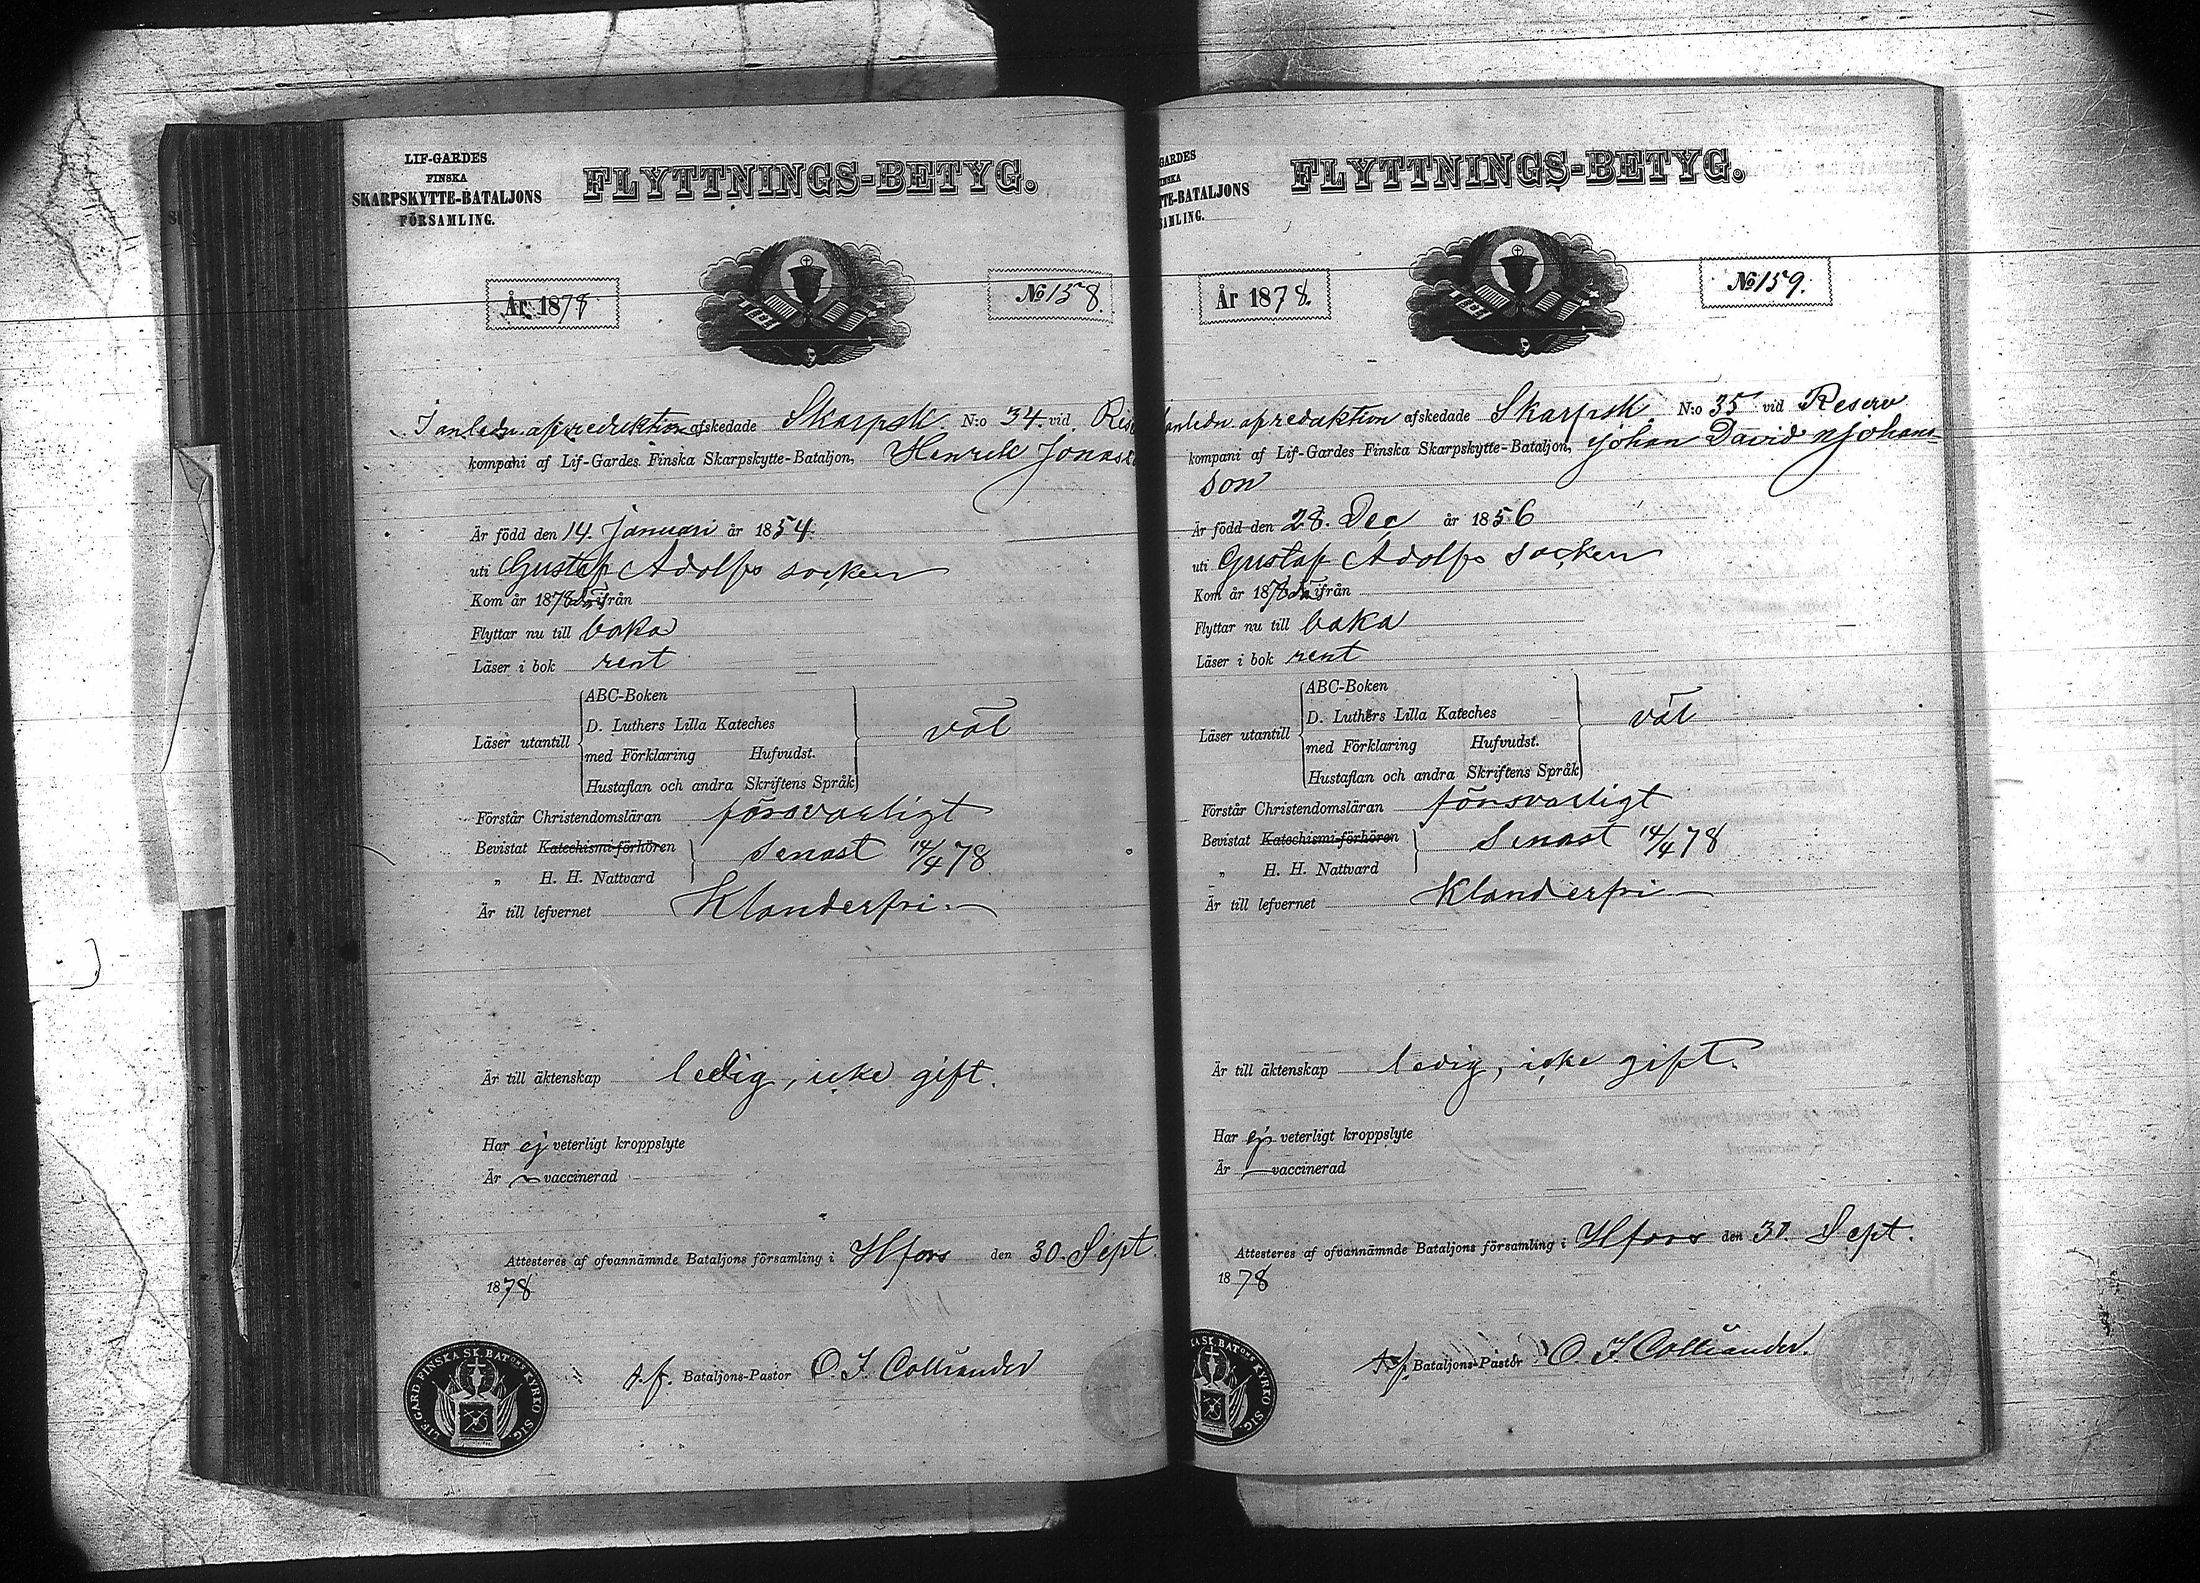 LIF-GARDES
FINSKA
SKARPSKYTTE-BATALJONS
FÖRSAMLING.
FLYTTNINGS-BETYG.
År 1878
No 158.
I anledn. af reduktion afskedade Skarpsk. N:o 34 vid Res
kompani af Lif-Gardes Finska Skarpskytte-Bataljon, Henrik Jonass
Är född den 14. Januari år 1854.
uti Gustaf Adolfs socken
Kom år 1878 ifrån
Flyttar nu till baka
Läser i bok rent
Läser utantill
ABC-Boken
D. Luthers Lilla Kateches
med Förklaring Hufvudst.
Hustaflan och andra Skriftens Språk
väl
Förstår Christendomsläran försvarligt
Bevistat Katechismi-förhören
„ H. H. Nattvard
senast 14/4 78.
Är till lefvernet Klanderfri.
Är till äktenskap ledig, icke gift.
Har ej veterligt kroppslyte
Är vaccinerad
Attesteres af ofvannämnde Bataljons församling i Hfors den 30. Sept.
1878
A.f. Bataljons-Pastor O. I. Colliander
LIF. GARD FINSKA SK. BATONS KYRKO SIG.
GARDES
INSKA
TTE-BATALJONS
SAMLING.
FLYTTNINGS-BETYG.
År 1878.
No 159.
anledn af reduktion afskedade Skarpsk N:o 35 vid Reserv
kompani af Lif-Gardes Finska Skarpskytte-Bataljon, Johan David Johans-
son
Är född den 28. Dec år 1856
uti Gustaf Adolfs socken
Kom år 1878 ifrån
Flyttar nu till baka
Läser i bok rent
Läser utantill
ABC-Boken
D. Luthers Lilla Kateches
med Förklaring Hufvudst.
Hustaflan och andra Skriftens Språk
väl
Förstår Christendomsläran försvarligt
Bevistat Katechismi-förhören
„ H. H. Nattvard
Senast 14/4 78
Är till lefvernet Klanderfri
Är till äktenskap ledig, icke gift.
Har ej veterligt kroppslyte
Är vaccinerad
Attesteres af ofvannämnde Bataljons församling i Hfors den 30. Sept.
1878
A.f. Bataljons-Pastor O. I. Colliander.
KA SK. BATONS KYRKO SIG.